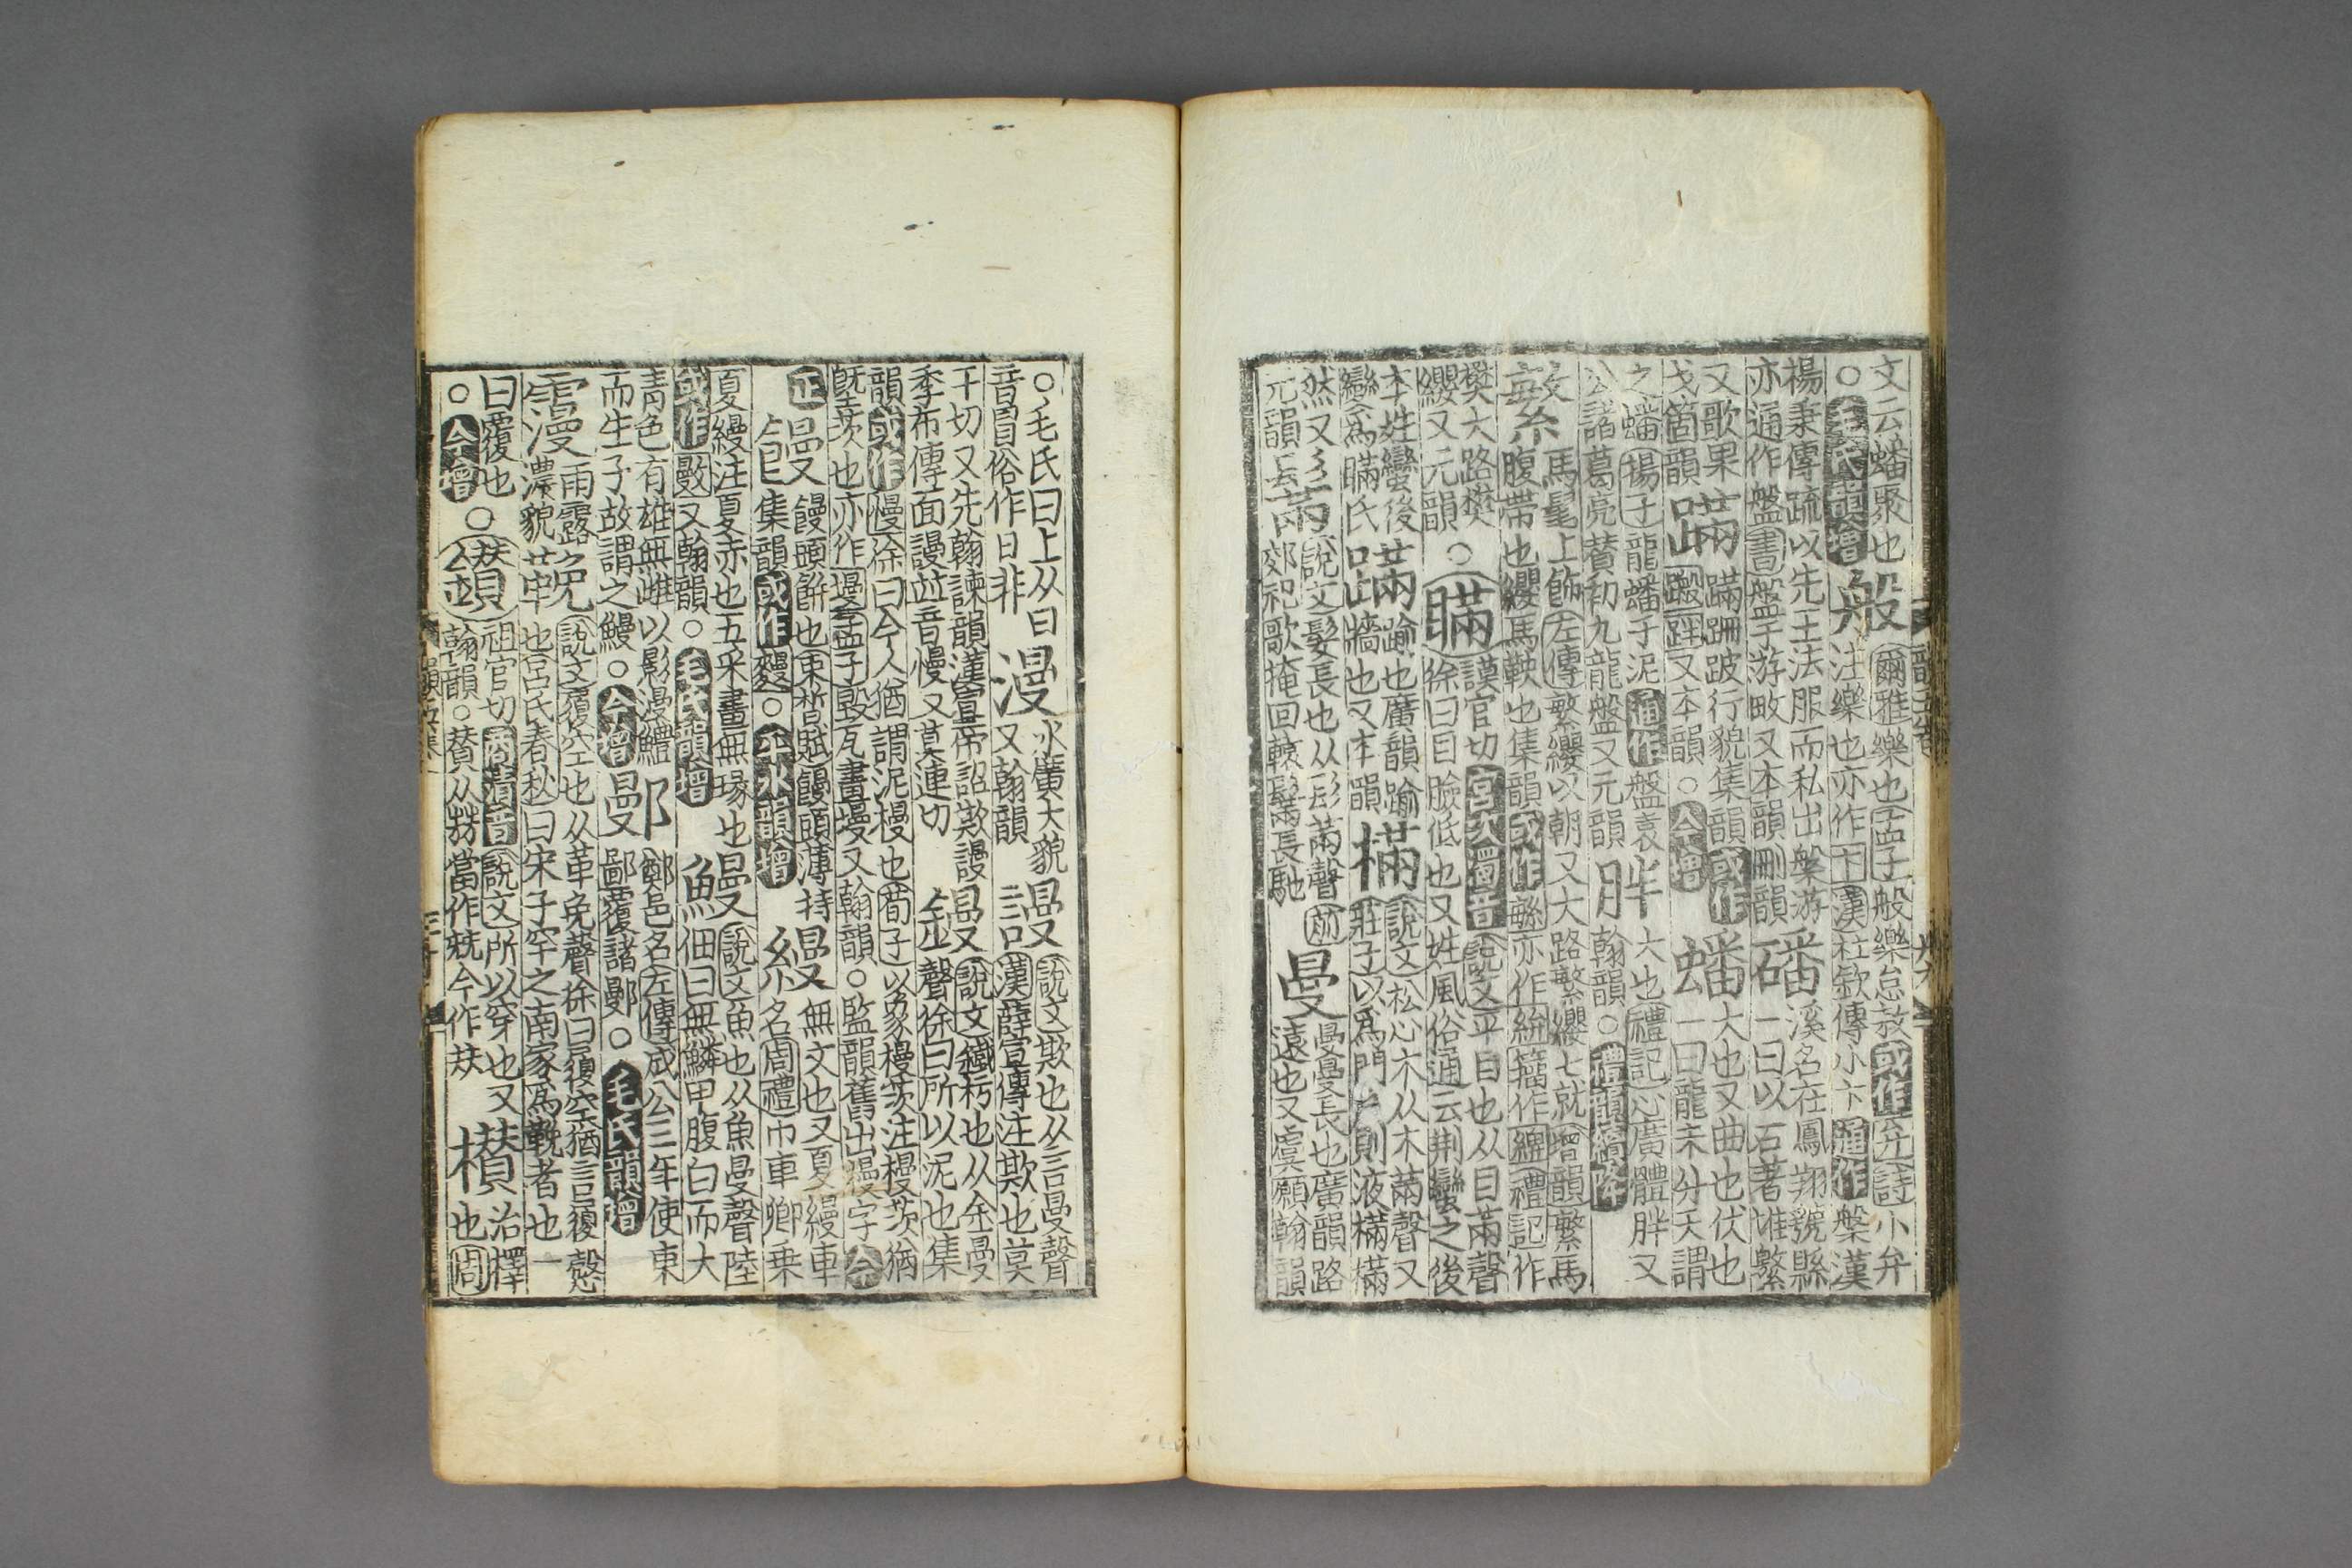 文云蟠聚也
○毛氏韻增
般
爾雅樂也孟子般樂怠敖或作弁詩小弁
注樂也亦作卞漢杜欽傳小卞通作槃漢
楊秉傳疏以先王法服而私出槃游
亦通作盤書盤于游畋又本韻刪韻
磻
溪名在鳳翔虢縣
一曰以石著惟繁
又歌果
戈箇韻
蹣
蹣跚跛行貌集韻或作
又本韻○今增
蟠
大也又曲也伏也
一曰龍未分天謂
之蟠揚子龍蟠于泥通作盤袁
公諸葛亮贊初九龍盤又元韻
胖
大也禮記心廣體胖又
翰韻○禮韻續降
繁
馬髦上飾左傳繁纓以朝又大路繁纓七就增韻繁馬
腹帶也纓馬鞅也集韻或作亦作籀作禮記作
樊大路樊
纓又元韻○
瞞
謨官切宮次濁音說文平目也从目㒼聲
徐曰目臉低也又姓風俗通云荆蠻之後
本姓蠻後
變爲瞞氏
蹣
踰也廣韻踰
牆也又本韻
樠
說文松心木从木㒼聲又
莊子以爲門戶則液樠樠
然又
元韻
說文髮長也从髟㒼聲前
郊祀歌掩回轅鬗長馳
曼
曼曼長也廣韻路
遠也又虞願翰韻
○毛氏曰上从曰
音冒俗作日非
漫
水廣大貌
又翰韻
謾
說文欺也从言曼聲
漢薛宣傳注欺也莫
干切又先翰諫韻漢宣帝詔欺謾
季布傳面謾並音慢又莫連切
鏝
說文鐵杇也从金曼
聲徐曰所以泥也集
韻或作槾徐曰今人猶謂泥槾也荀子以象槾茨注槾茨猶
塈茨也亦作墁孟子毀瓦畫墁又翰韻○監韻舊出字今
正
饅
饅頭餅也束晳賦饅頭薄持
集韻或作○平水韻增
縵
無文也又夏縵車
名周禮巾車卿乘
夏縵注夏赤也五采畫無瑑也
或作又翰韻○毛氏韻增
鰻
說文魚也从魚曼聲陸
佃曰無鱗甲腹白而大
青色有雄無雌以影漫鱧
而生子故謂之鰻○今增
鄤
鄭邑名左傳成公三年使東
鄙覆諸鄤○毛氏韻增
雨露
濃貌
鞔
說文覆空也从革免聲徐曰覆空猶言覆殼
也呂氏春秋曰宋子罕之南家爲鞔者也一
曰覆也
○今增○
鑽
祖官切商次清音說文所以穿也又
翰韻○贊从兟當作兟今作㚘
欑
治擇
也周